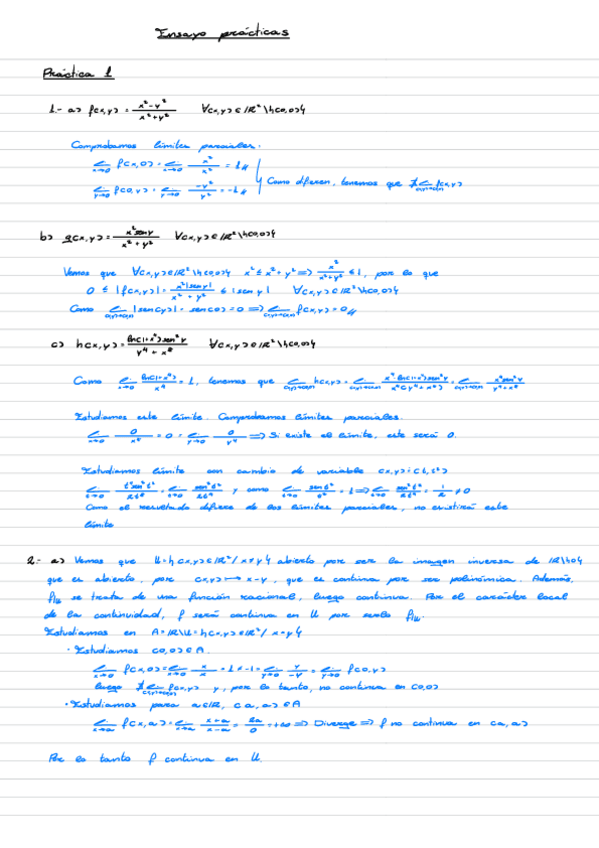 Ensayo prácticas
Práctica 1
1.- a) f(x,y) = x²-y² / x²+y² ∀(x,y)∈ℝ²\{(0,0)}
Comprobamos límites parciales.
lim x→0 f(x,0) = lim x→0 x²/x² = 1
lim y→0 f(0,y) = lim y→0 -y²/y² = -1
Como difieren, tenemos que ∄ lim (x,y)→(0,0) f(x,y)
b) g(x,y) = x² sen y / x²+y² ∀(x,y)∈ℝ²\{(0,0)}
Vemos que ∀(x,y)∈ℝ²\{(0,0)} x² ≤ x²+y² ⇒ x²/x²+y² ≤ 1, por lo que
0 ≤ |f(x,y)| = x²|sen y| / x²+y² ≤ |sen y| ∀(x,y)∈ℝ²\{(0,0)}
Como lim (x,y)→(0,0) |sen(y)| = sen(0) = 0 ⇒ lim (x,y)→(0,0) f(x,y) = 0
c) h(x,y) = ln(1+x⁴) sen² y / y⁴+x⁸ ∀(x,y)∈ℝ²\{(0,0)}
Como lim x→0 ln(1+x⁴)/x⁴ = 1, tenemos que lim (x,y)→(0,0) h(x,y) = lim (x,y)→(0,0) x⁴ ln(1+x⁴) sen² y / x⁴(y⁴+x⁸) = lim (x,y)→(0,0) x⁴ sen² y / y⁴+x⁸
Estudiamos este límite. Comprobamos límites parciales.
lim x→0 0/x⁸ = 0 = lim y→0 0/y⁴ ⇒ Si existe el límite, este será 0.
Estudiamos límite con cambio de variable (x,y)=(t,t²)
lim t→0 t⁴ sen² t² / 2t⁸ = lim t→0 sen² t² / 2t⁴ y como lim t→0 sen t² / t² = 1 ⇒ lim t→0 sen² t² / 2t⁴ = 1/2 ≠ 0
Como el resultado difiere de los límites parciales, no existirá este
límite
2.- a) Vemos que U={(x,y)∈ℝ²/ x≠y} abierto por ser la imagen inversa de ℝ\{0}
que es abierto, por (x,y) ↦ x-y, que es continua por ser polinómica. Además,
f|U se trata de una función racional, luego continua. Por el carácter local
de la continuidad, f será continua en U por serlo f|U.
Estudiamos en A=ℝ\U={(x,y)∈ℝ²/ x=y}
· Estudiamos (0,0)∈A.
lim x→0 f(x,0) = lim x→0 x/x = 1 ≠ -1 = lim y→0 y/-y = lim y→0 f(0,y)
luego ∄ lim (x,y)→(0,0) f(x,y) y, por lo tanto, no continua en (0,0)
· Estudiamos para a∈ℝ, (a,a)∈A
lim x→a f(x,a) = lim x→a x+a / x-a = 2a/0 = +∞ ⇒ Diverge ⇒ f no continua en (a,a)
Por lo tanto f continua en U.